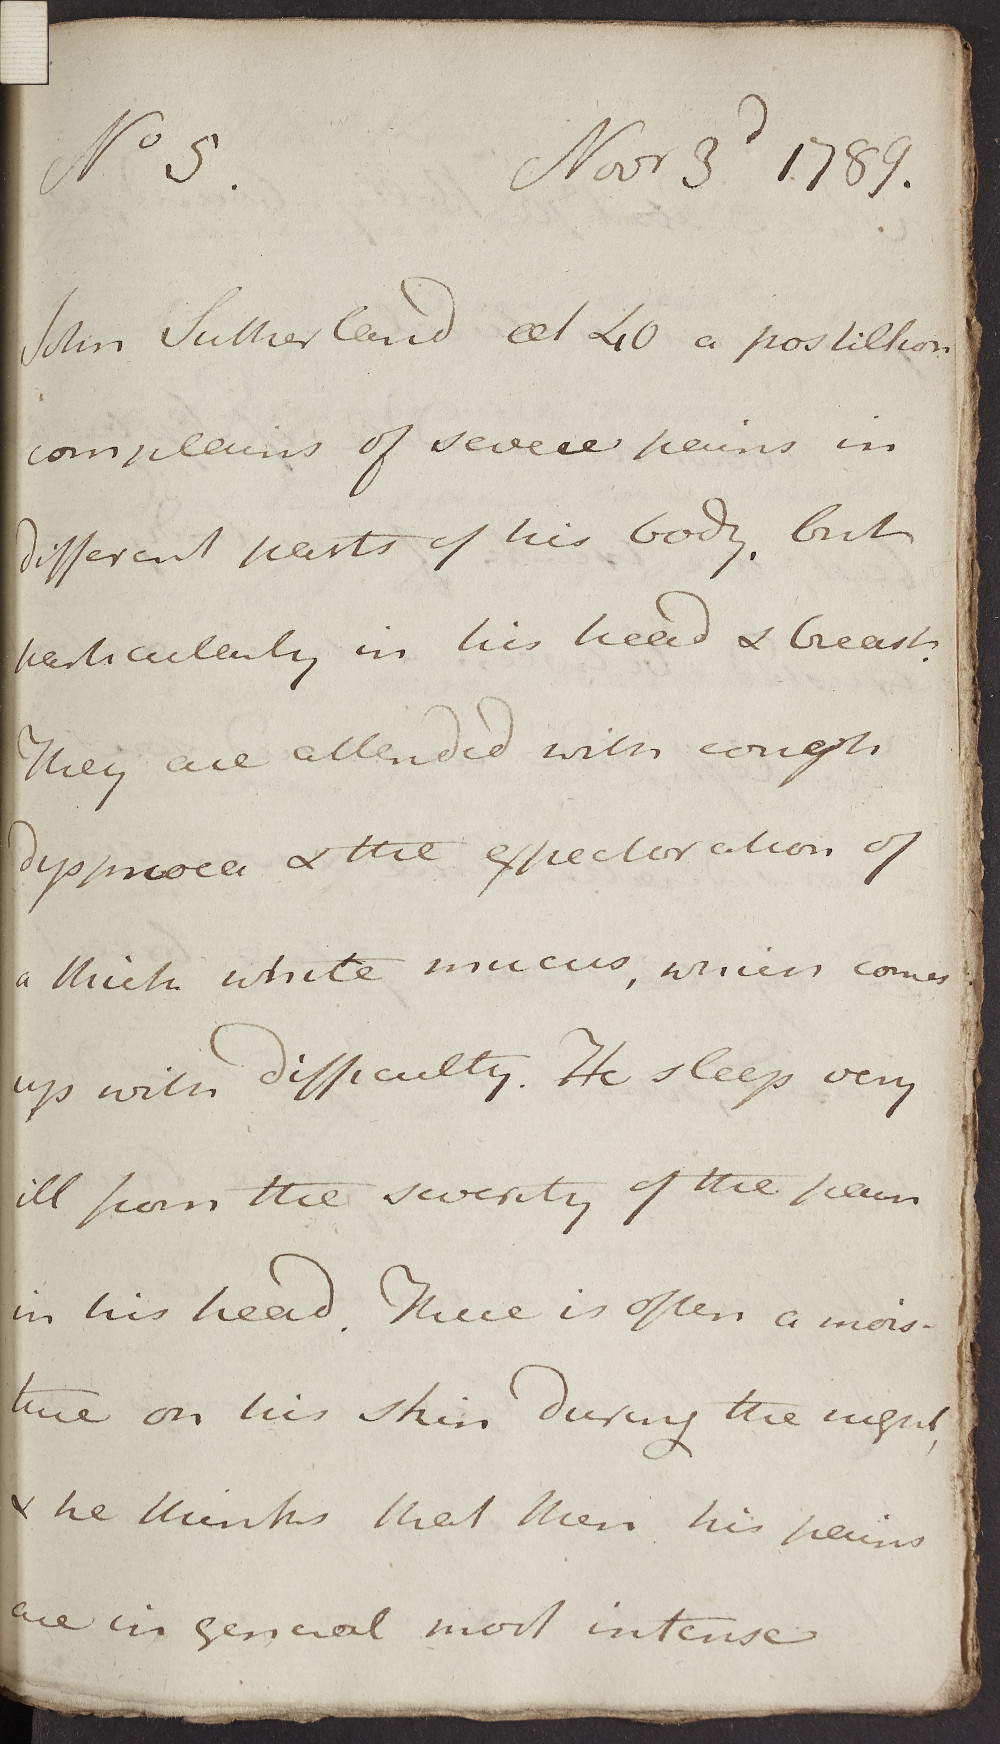 No 5. Novr 3d 1789.
John Sutherland aet 40 a postillion
complains of severe pains in
different parts of his body, but
particularly in his head & breast.
They are attended with cough
dyspnoea & the expectoration of
a thick white mucus, which comes
up with difficulty. He sleeps very
ill from the severity of the pain
in his head. There is often a mois-
ture on his skin during the night,
& he thinks that then his pains
are in general most intense